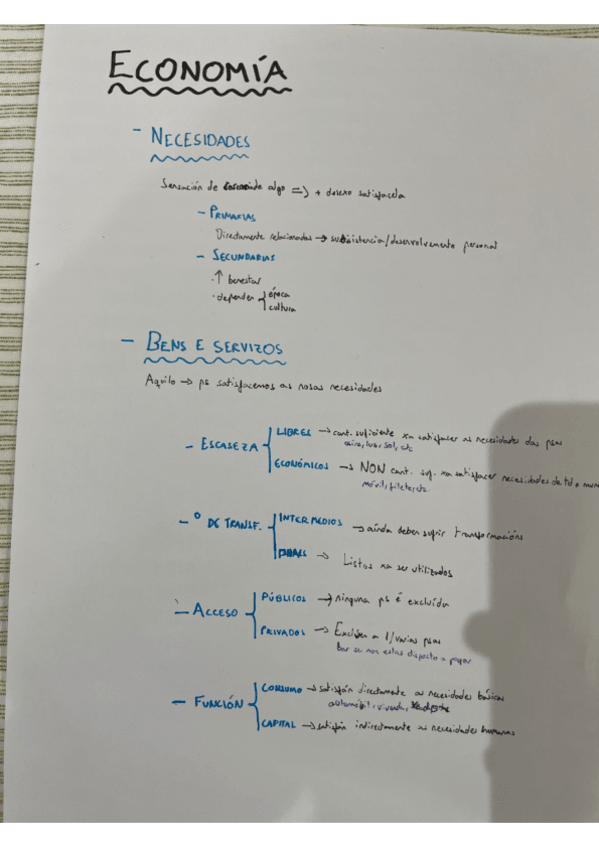 ECONOMÍA
- NECESIDADES
Sensación de algo => + desexo satisfacela
- PRIMARIAS
Directamente relacionadas → subsistencia/desenvolvemento personal
- SECUNDARIAS
· ↑ benestar
· dependen { época
cultura
- BENS E SERVIZOS
Aquilo → ps satisfacemos as nosas necesidades
- ESCASEZA
LIBRES → cant. suficiente xa satisfacer as necesidades das psas
aire, luz, sol, etc
ECONÓMICOS → NON cant. suf. xa satisfacer necesidades de td o mun
móvil, filete, etc.
- º DE TRANSF.
INTERMEDIOS → aínda deben sufrir transformacións
→ Listos xa ser utilizados
- ACCESO
PÚBLICOS → ninguna ps é excluída
PRIVADOS → Exclúen a 1/varias psas
Bar se non estas disposto a pagar
- FUNCIÓN
CONSUMO → satisfán directamente as necesidades básicas
automóbil, vivenda,
CAPITAL → satisfán indirectamente as necesidades humanas